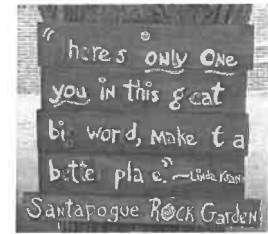 "here's only one
you in this g eat
bi word, make t a
bette pla e." ~Linda Kran
Santapogue Rock Garden!